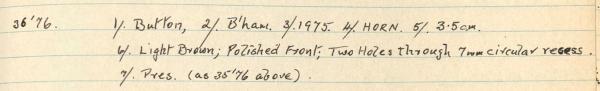 36'76. 1/. Button, 2/. B'ham. 3/. 1975. 4/. HORN. 5/. 3·5cm.
6/. Light Brown; Polished Front; Two Holes through 7mm circular recess.
7/. Pres. (as 35'76 above).